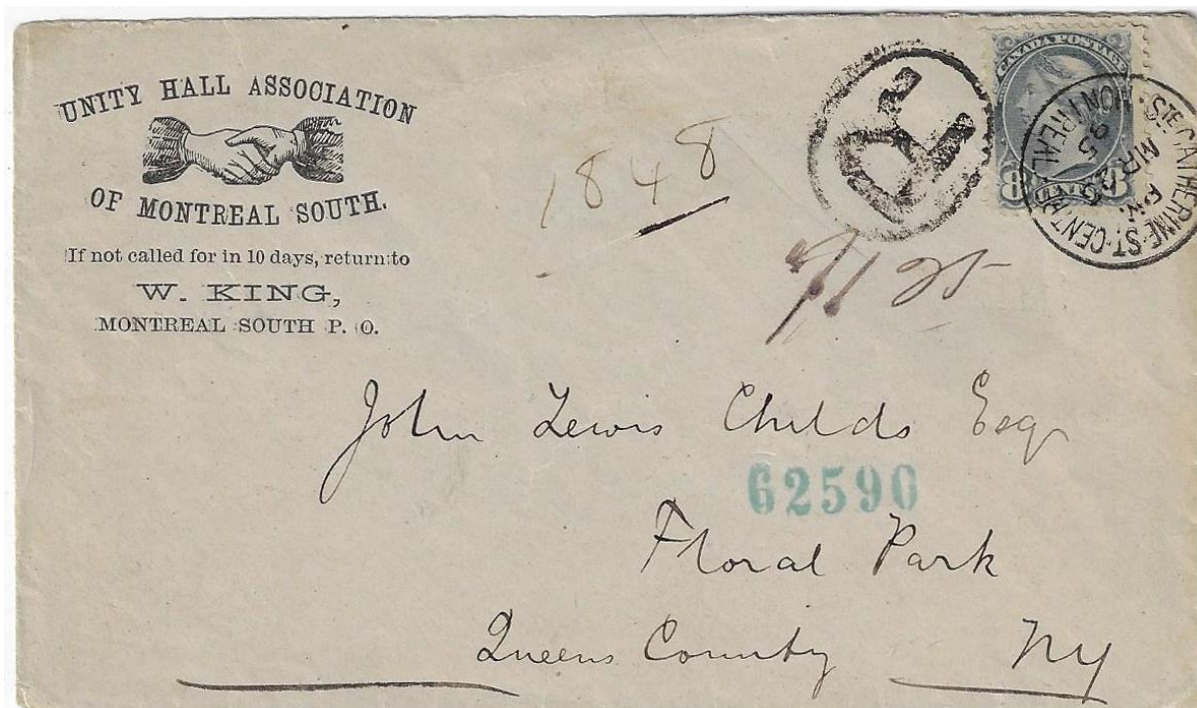 UNITY HALL ASSOCIATION
OF MONTREAL SOUTH.
If not called for in 10 days, return to
W. KING,
MONTREAL SOUTH P. O.
1848
R
CANADA POSTAGE
8 CENTS 8
STE CATHERINE ST. CENTRE
PM
MR
95
MONTREAL
John Lewis Childs Esq
62590
Floral Park
Queens County NY